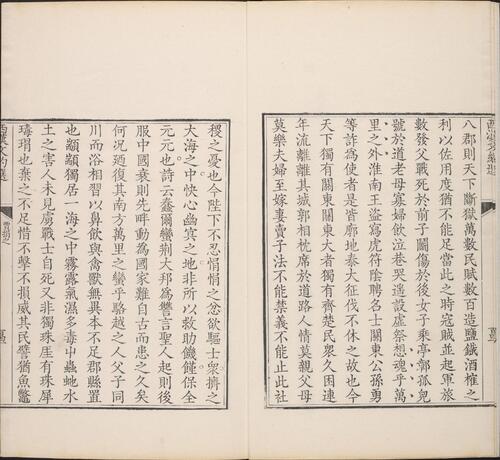 八郡則天下斷獄萬數民賦數百造鹽鐵酒榷之
利以佐用度猶不能足當此之時寇賊並起軍旅
數發父戰死於前子鬭傷於後女子乘亭鄣孤兒
號於道老母寡婦飲泣巷哭遥設虛祭想魂乎萬
里之外淮南王盜寫虎符陰聘名士關東公孫勇
等詐為使者是皆廓地泰大征伐不休之故也今
天下獨有關東關東大者獨有齊楚民衆久困連
年流離離其城郭相枕席於道路人情莫親父母
莫樂夫婦至嫁妻賣子法不能禁義不能止此社
稷之憂也今陛下不忍悁悁之忿欲驅士衆擠之
大海之中快心幽冥之地非所以救助饑饉保全
元元也詩云蠢爾蠻荆大邦為讐言聖人起則後
服中國衰則先畔動為國家難自古而患之久矣
何況廼復其南方萬里之蠻乎駱越之人父子同
川而浴相習以鼻飲與禽獸無異本不足郡縣置
也顓顓獨居一海之中霧露氣濕多毒中蟲蛇水
土之害人未見虜戰士自死又非獨珠厓有珠犀
瑇瑁也棄之不足惜不擊不損威其民譬猶魚鼈
賈捐之